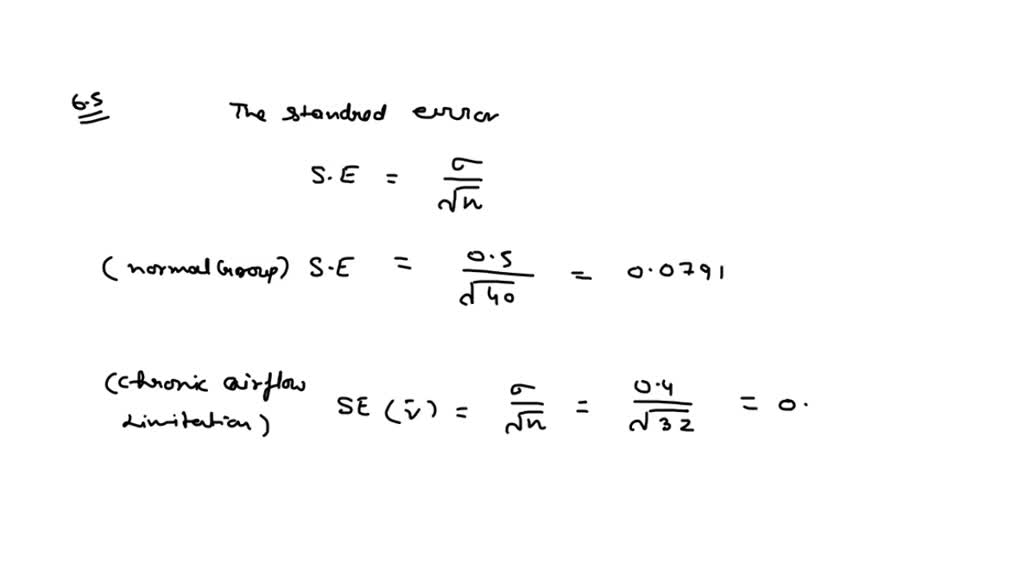 6.5 The standred error
S.E = σ/√n
(normal Group) S.E = 0.5/√40 = 0.0791
(Chronic airflow
Limitation) SE (v̄) = σ/√n = 0.4/√32 = 0.